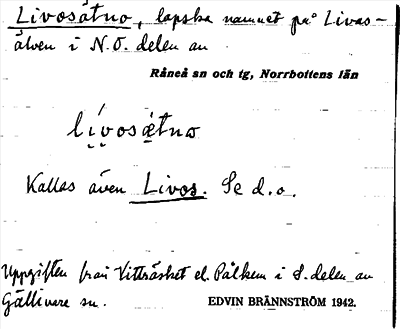 Livosätno, lapska namnet på Livas-
älven i N.Ö. delen av
Råneå sn och tg, Norrbottens län
lívosætno
Kallas även Livos. Se d.o.
Uppgiften från Vitträsket el. Pålkem i S. delen av
Gällivare sn.
EDVIN BRÄNNSTRÖM 1942.